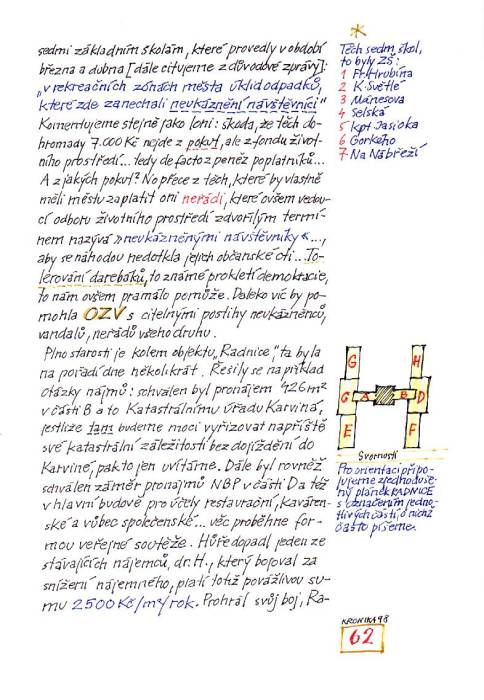 sedmi základním školám, které provedly v období
března a dubna [dále citujeme z důvodové zprávy]:
„v rekreačních zónách města úklid odpadků,
které zde zanechali neukáznění návštěvníci“
Komentujeme stejně jako loni: škoda, že těch do-
hromady 7.000 Kč nejde z pokut, ale z fondu život-
ního prostředí... tedy de facto z peněz poplatníků...
A z jakých pokut? No přece z těch, které by vlastně
měli městu zaplatit oni neřádi, které ovšem vedou-
cí odboru životního prostředí zdvořilým termí-
nem nazývá »neukázněnými návštěvníky«...,
aby se náhodou nedotkla jejich občanské cti... To-
lerování darebáků, to známé prokletí demokracie,
to nám ovšem pramálo pomůže. Daleko víc by po-
mohla OZV s citelnými postihy neukázněnců,
vandalů, neřádů všeho druhu.
Plno starostí je kolem objektu „Radnice“, ta byla
na pořadí dne několikrát. Řešily se na příklad
otázky nájmů: schválen byl pronájem 426 m²
v části B a to Katastrálnímu úřadu Karviná,
jestliže tam budeme moci vyřizovat napříště
své katastrální záležitosti bez dojíždění do
Karviné, pak to jen uvítáme. Dále byl rovněž
schválen záměr pronájmů NBP v části D a též
v hlavní budově pro účely restaurační, kaváren-
ské a vůbec společenské... věc proběhne for-
mou veřejné soutěže. Hůře dopadl jeden ze
stávajících nájemců, dr. H., který bojoval za
snížení nájemného, platí totiž povážlivou su-
mu 2500 Kč/m²/rok. Prohrál svůj boj, Ra-
*
Těch sedm škol,
to byly ZŠ:
1 Fr. Hrubína
2 K. Světlé
3 Mánesova
4 Selská
5 kpt. Jasioka
6 Gorkého
7 Na Nábřeží
G H
C A B D
E F
Svornosti
Pro orientaci připo-
jujeme zjednoduše-
ný plánek RADNICE
s označením jedno-
tlivých částí, o nichž
často píšeme.
KRONIKA 98
62